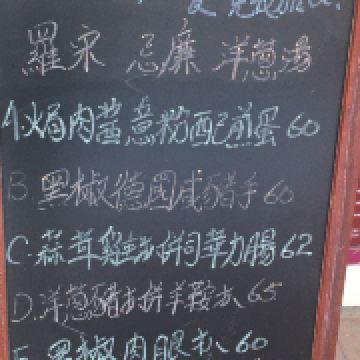 羅宋 忌廉 洋蔥湯
A.焗肉醬意粉配煎蛋 60
B.黑椒德國咸豬手 60
C.蒜茸雞扒拼司華力腸 62
D.洋蔥豬扒拼羊鞍扒 65
E.黑椒肉眼扒 60